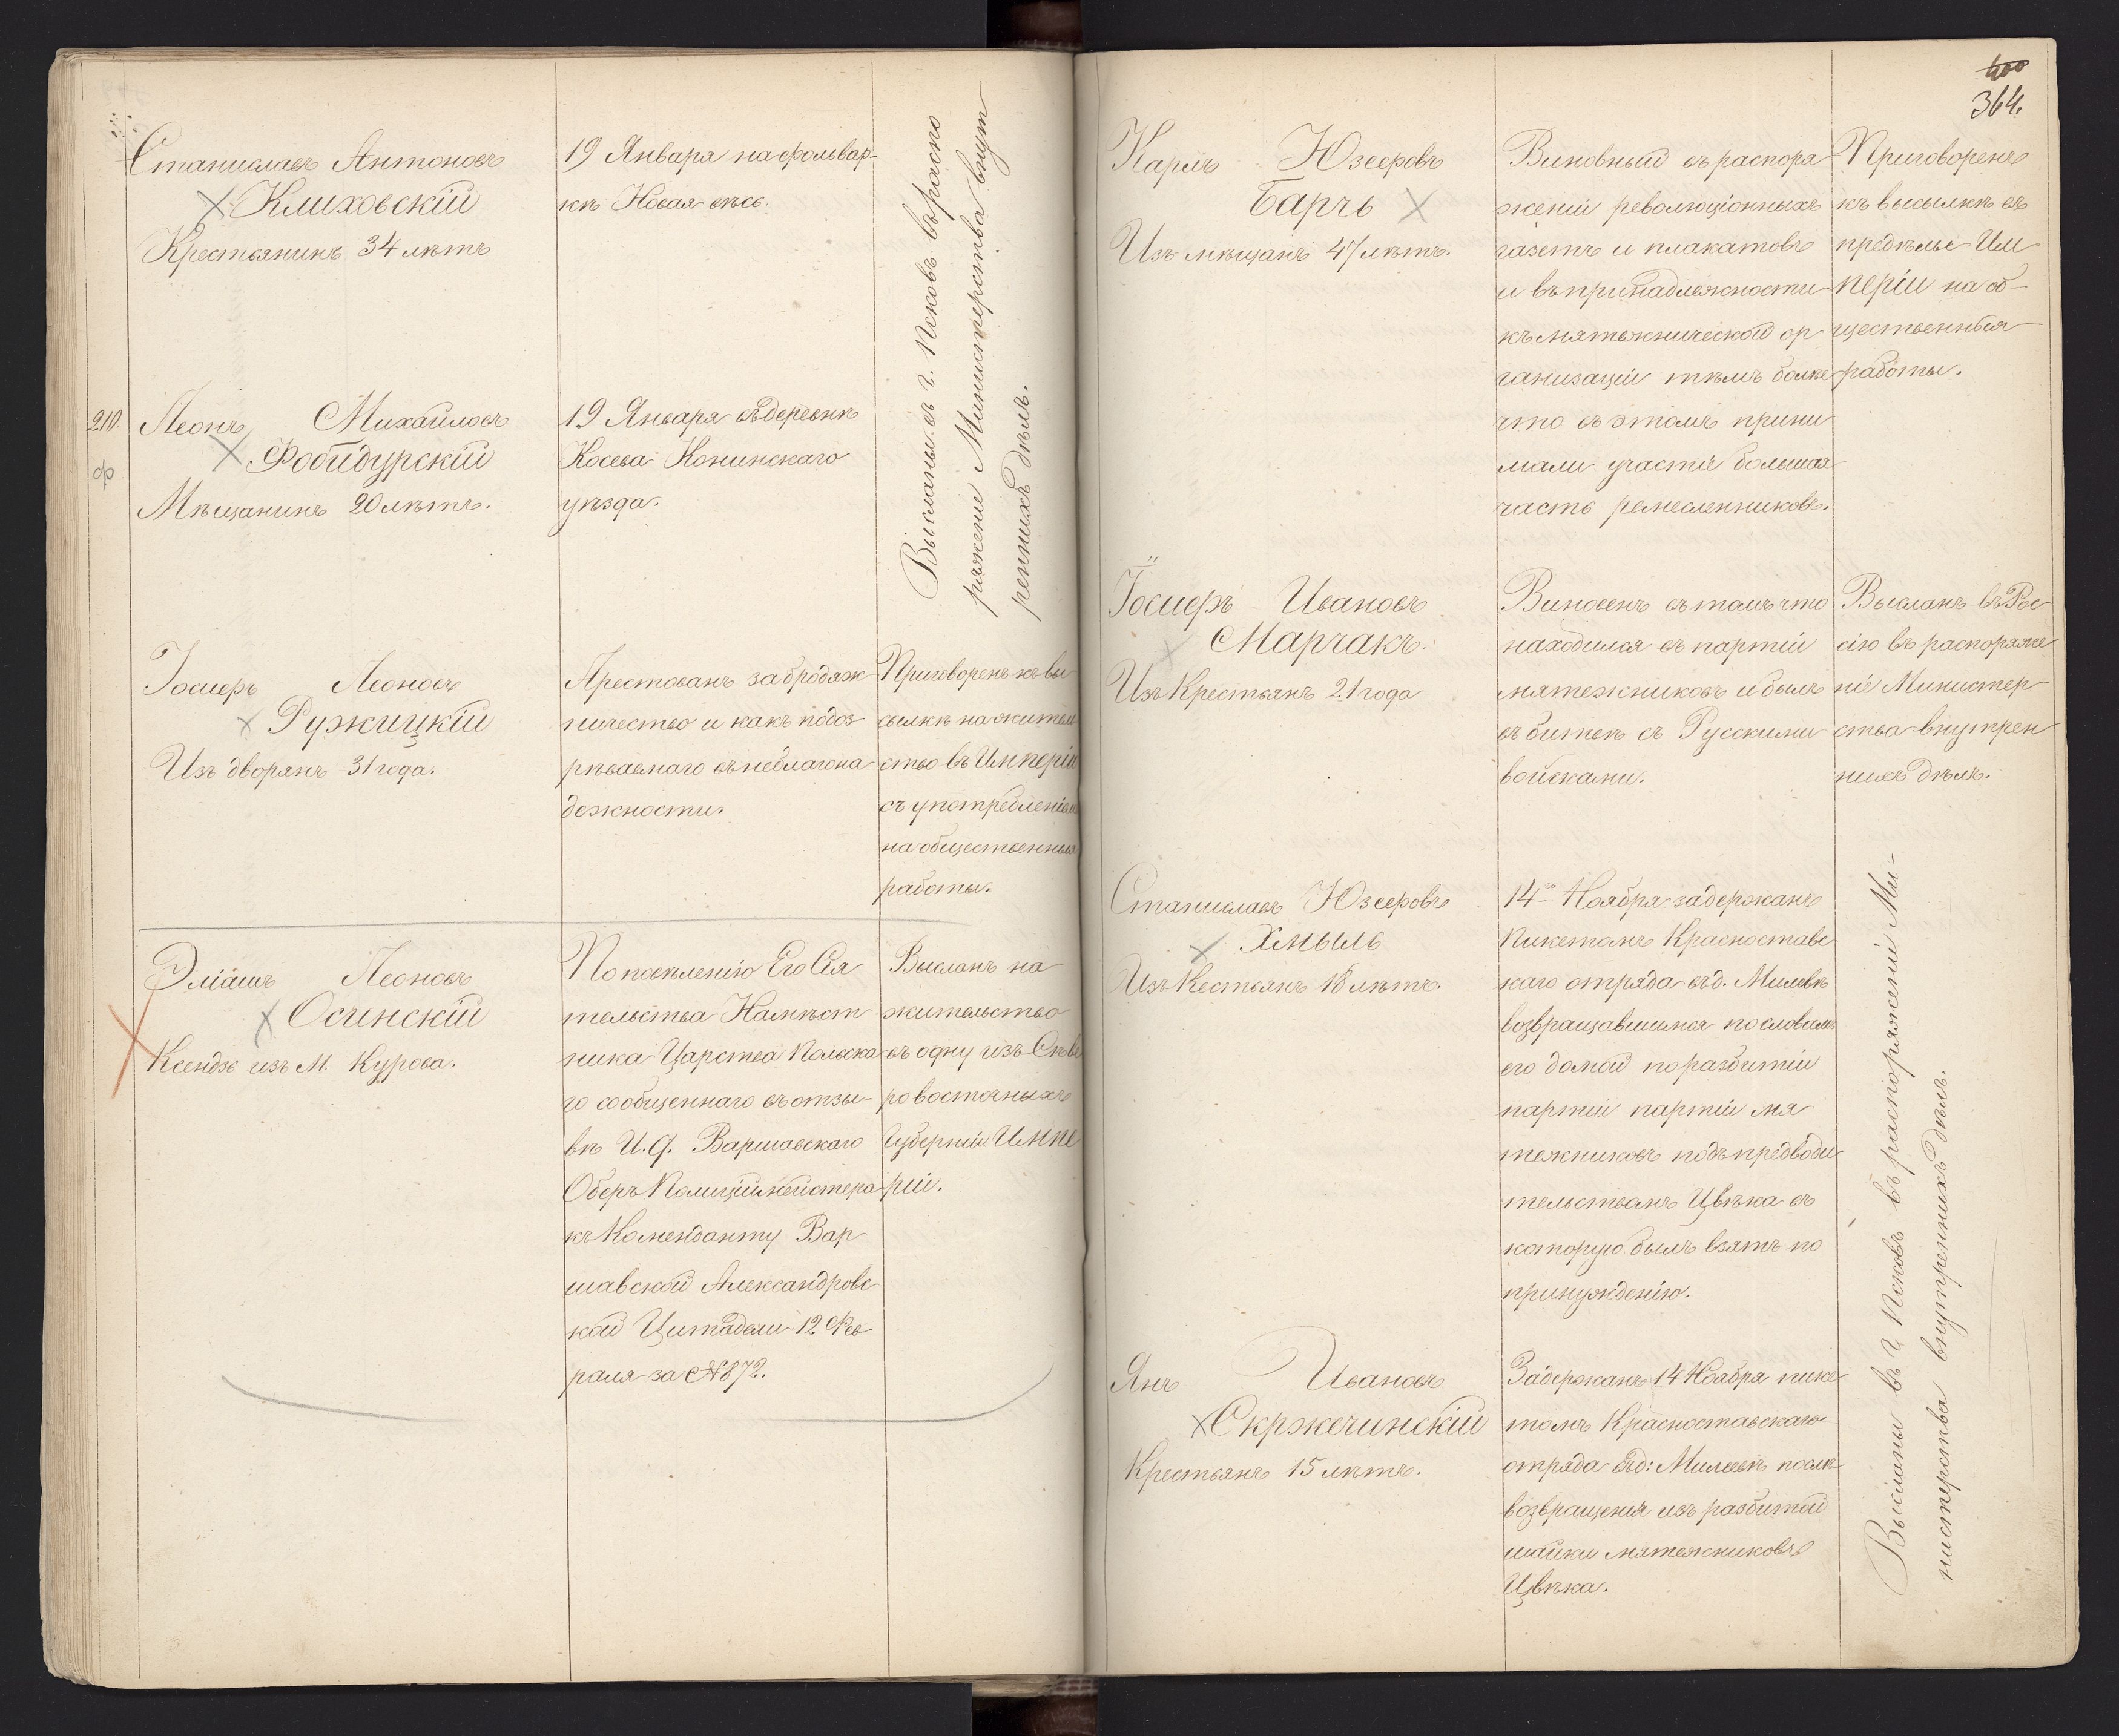 Станиславъ Антоновъ
Клиховскій
Крестьянинъ 34 лѣтъ
19 Января на фольвар-
кѣ Новая весь.
Высланы въ г. Псковъ въ распо
ряженіе Министерства внут
реннихъ дѣлъ.
210.
Леонъ Михайловъ
Мѣщанинъ 20 лѣтъ.
19 Января въ деревнѣ
Косева Конинскаго
уѣзда.
Іосифъ Леоновъ
Ружицкій
Изъ дворянъ 31 года.
Арестованъ за бродяж
ничество и какъ подоз
рѣваемаго въ неблагона
дежности.
Приговоренъ къ вы
сылкѣ на житель
ство въ Имперіи
съ употребленіемъ
на общественныя
работы.
Эліашъ Леоновъ
Осинскій
Ксендзъ изъ М. Курова.
По повѣленію Его Сія
тельства Намѣст
ника Царства Польска
го сообщеннаго въ отзы-
вѣ И. д. Варшавскаго
Оберъ Полиціймейстера
къ Коменданту Вар
шавской Александровс
кой Цитадели 12 Фев
раля за № 872.
Высланъ на
жительство
въ одну изъ Сѣве
ро восточныхъ
Губерній Импе
ріи.
400
364.
Карлъ Юзефовъ
Барчъ
Изъ мѣщанъ 47 лѣтъ.
Виновный въ распоря
женіи революціонныхъ
газетъ и плакатовъ
и въ принадлежности
къ мятежнической ор
ганизаціи тѣмъ болѣе
что въ этомъ прини
мали участіе большая
часть ремесленниковъ.
Приговоренъ
къ высылкѣ въ
предѣлы Им
періи на об-
щественныя
работы.
Іосифъ Ивановъ
Марчакъ.
Изъ Крестьянъ 21 года
Виновенъ въ томъ что
находился въ партіи
мятежниковъ и былъ
въ битвѣ съ Русскими
войсками.
Высланъ въ Рос
сію въ распоряже
ніе Министер-
ства внутрен
нихъ дѣлъ.
Станиславъ Юзефовъ
Хмыль
Изъ Кестьянъ 18 лѣтъ.
14го Ноября задержанъ
Пикетомъ Красноставс
каго отряда въ д. Милевѣ
возвращавшимся по словамъ
его домой по разбитіи
партіи партіи мя
тежниковъ подъ предводи
тельствомъ Цвѣка въ
которую былъ взятъ по
принужденію.
Янъ Ивановъ
Скржечинскій
Крестьянъ 15 лѣтъ.
Задержанъ 14 Ноября пике
томъ Красноставскаго
отряда въ д: Милевѣ послѣ
возвращенія изъ разбитой
шайки мятежниковъ
Цвѣка.
Высланы въ г. Псковъ въ распоряженіи Ми-
нистерства внутреннихъ дѣлъ.